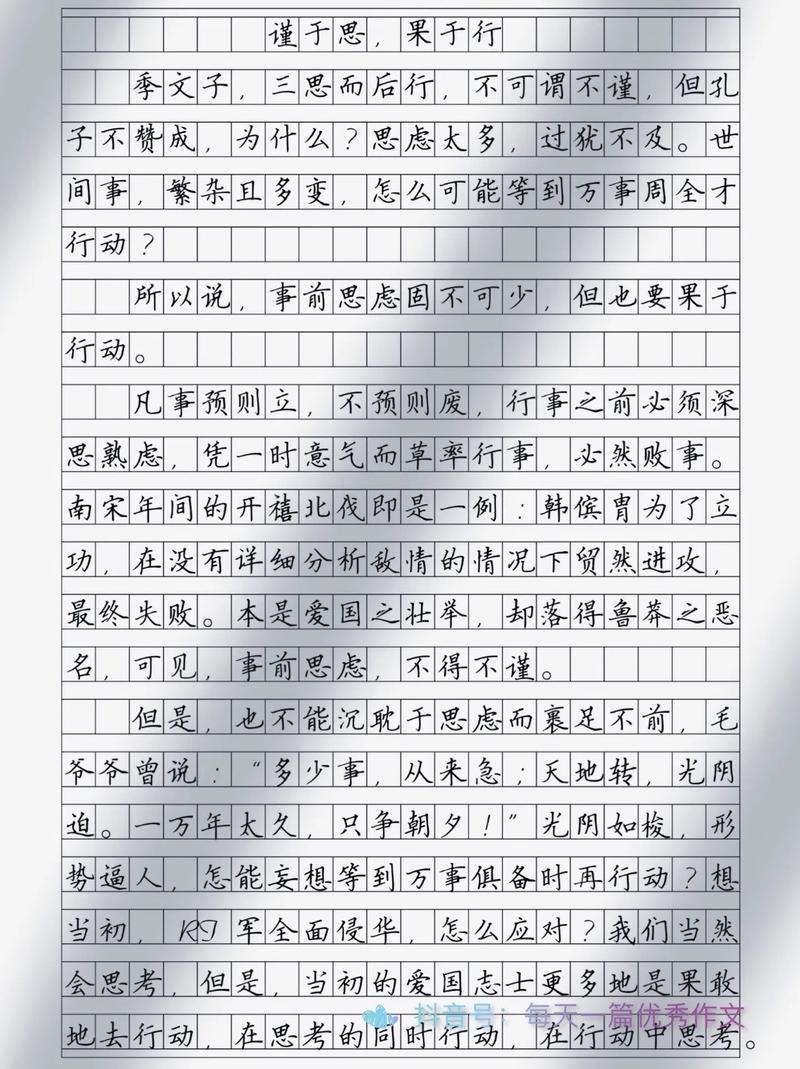 谨于思，果于行
季文子，三思而后行，不可谓不谨，但孔
子不赞成，为什么？思虑太多，过犹不及。世
间事，繁杂且多变，怎么可能等到万事周全才
行动？
所以说，事前思虑固不可少，但也要果于
行动。
凡事预则立，不预则废，行事之前必须深
思熟虑，凭一时意气而草率行事，必然败事。
南宋年间的开禧北伐即是一例：韩傧胄为了立
功，在没有详细分析敌情的情况下贸然进攻，
最终失败。本是爱国之壮举，却落得鲁莽之恶
名，可见，事前思虑，不得不谨。
但是，也不能沉耽于思虑而裹足不前，毛
爷爷曾说：“多少事，从来急；天地转，光阴
迫。一万年太久，只争朝夕！”光阴如梭，形
势逼人，怎能妄想等到万事俱备时再行动？想
当初，RJ军全面侵华，怎么应对？我们当然
会思考，但是，当初的爱国志士更多地是果敢
地去行动，在思考的同时行动，在行动中思考。
抖音号：每天一篇优秀作文